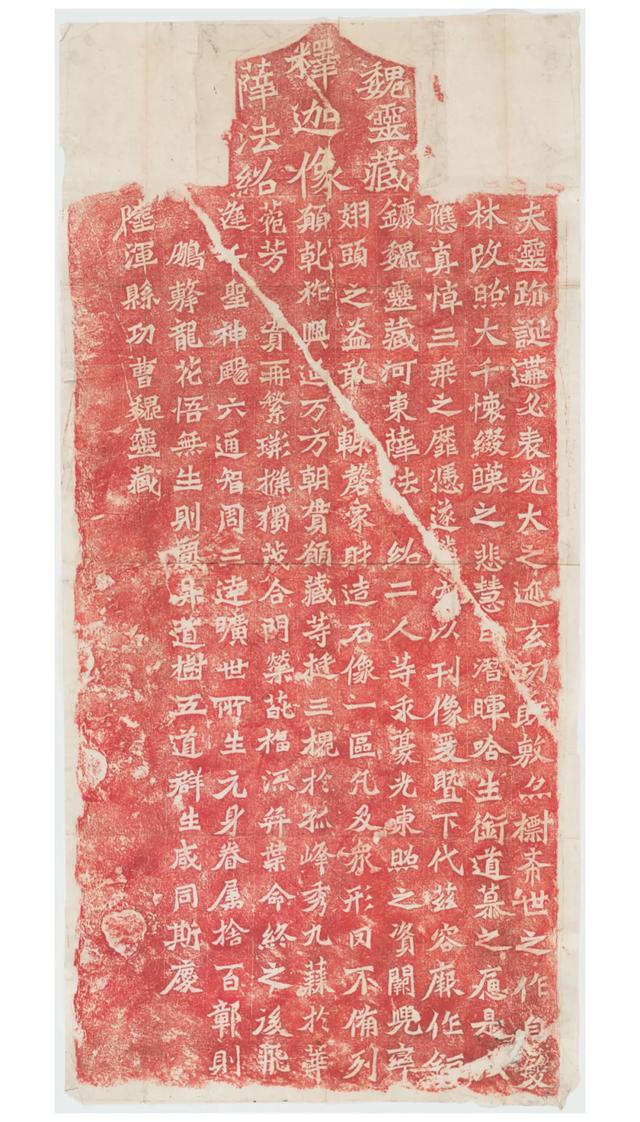 魏靈藏
釋迦像
薛法紹
夫靈跡誕遘必表光大之迹玄功既敷亦標希世之作自雙
林改昭大千懷綴暎之悲慧日潛暉哈生銜道慕之痛是以
應真悼三乘之靡憑遂以刊像爰暨下代茲容厥作鉅
鏕魏靈藏河東薛法紹二人等求豪光東照之資闕兜率
翅頭之益敢輒罄家財造石像一區凡及眾形罔不備列
願乾祚興延万方朝貫願藏等挺三槐於孤峰秀九蕀於華
菀芳實再繁荊條獨茂合門榮葩福流奕葉命終之後飛
逢千聖神颺六通智周三達曠世所生元身眷属捨百鄣則
鵬擊龍花悟無生則鳳昇道樹五道群生咸同斯慶
陸渾縣功曹魏靈藏